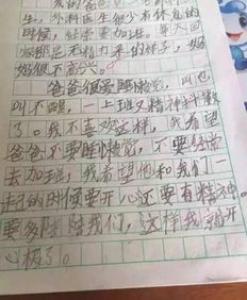 我的爸爸
生。外科医生很少有休息的
时候，经常要加班。每天回
家都是无精打采的样子，
妈很不高兴。
爸爸很爱睡懒觉，叫也
叫不醒，一上班又精神抖擞
了。我不喜欢这样，我希望
爸爸不要睡懒觉，不要经常
去加班；我希望他和我们一
起的时候要开心还要有精神，
要多陪陪我们，这样我就开
心极了。